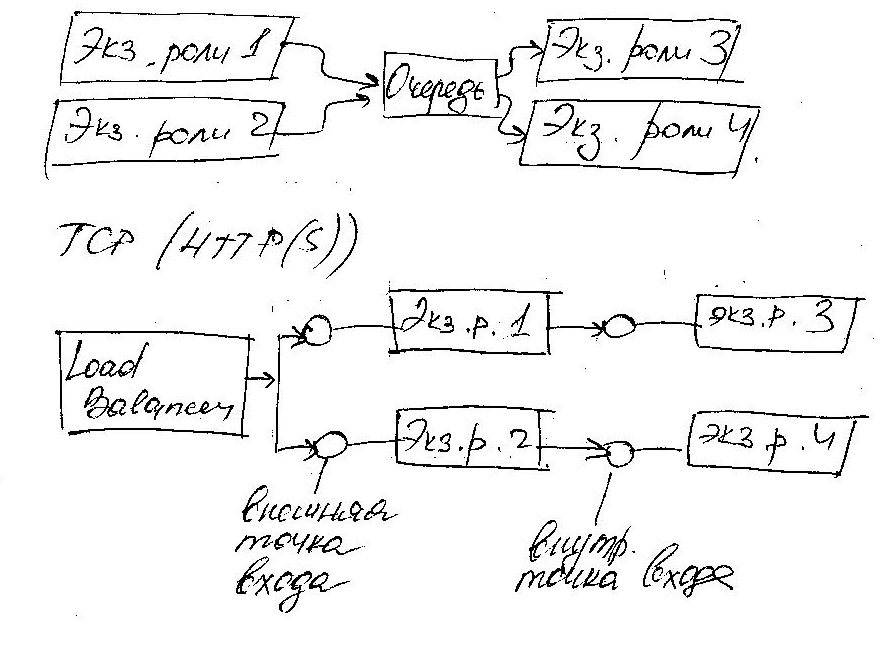 Экз. роли 1
Экз. роли 2
Очередь
Экз. роли 3
Экз. роли 4
TCP (HTTP(S))
Load
Balancer
Экз.р. 1
экз.р. 3
Экз.р. 2
экз р. 4
внешняя
точка
входа
внутр.
точка входа